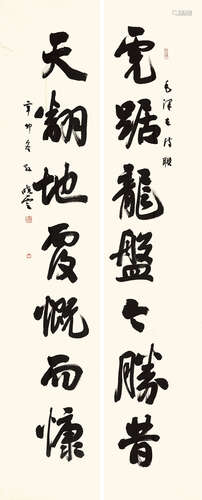 毛澤東詩聯
虎踞龍盤今勝昔
天翻地覆慨而慷
辛卯冬孫曉雲